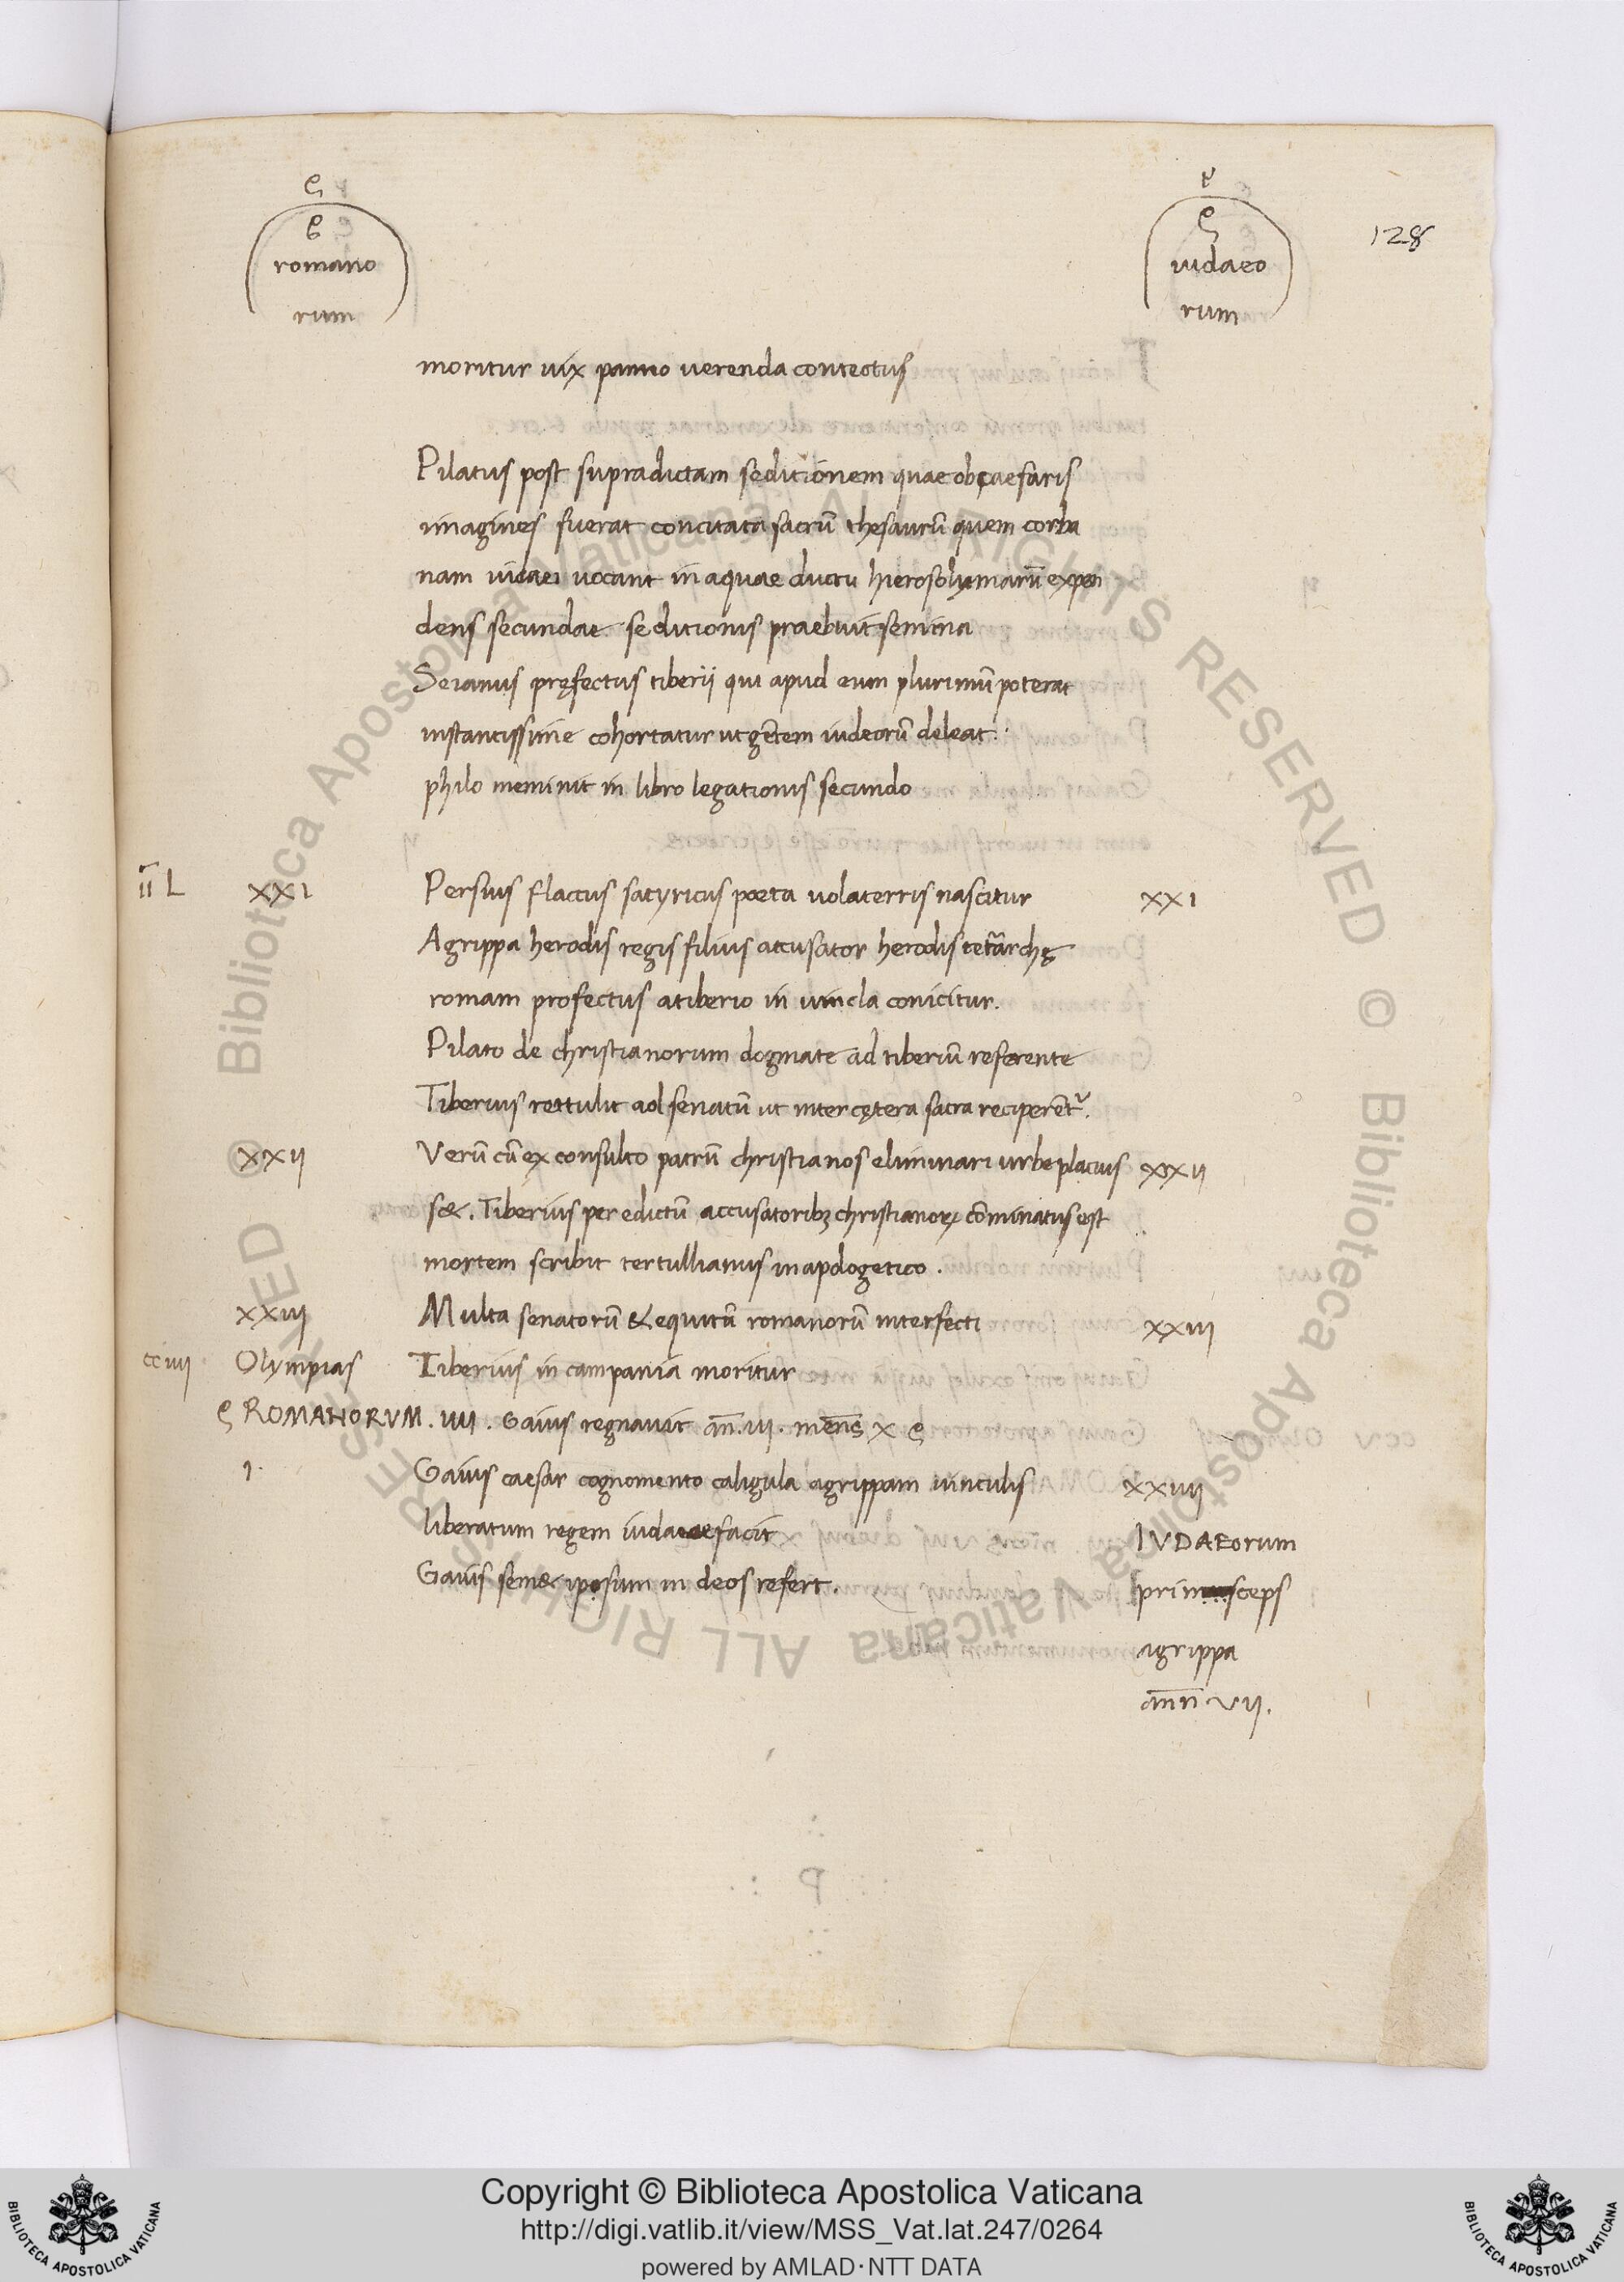 romano
rum
iudaeo
rum
128
moritur uix panno uerenda contectus
Pilatus post supradictam seditionem quae ob caesaris
imagines fuerat concitata sacrū thesaurū quem corba
nam iudaei uocant in aquae ductu hierosolymarū expen
dens secundae seditionis praebuit semina
Seianus pręfectus tiberii qui apud eum plurimū poterat
instantissime cohortatur ut gētem iudeorū deleat.
philo meminit in libro legationis secundo
īī L XXI Persius flaccus satyricus poeta uolaterris nascitur XXI
Agrippa herodis regis filius accusator herodis tetrarchę
romam profectus a tiberio in uincla conicitur.
Pilato de christianorum dogmate ad tiberiū referente
Tiberius rettulit ad senatū ut inter cętera sacra reciperent᷑.
XXII Verū cū ex consulto patrū christianos eliminari urbe placuis XXII
s&. Tiberius per edictū accusatoribꝫ christianoꝝ cōminatus est
mortem scribit tertullianus in apologetico.
XXIII Multa senatorū & equitū romanorū interfecti XXIII
cciiii Olympias Tiberius in campania moritur
ROMANORVM. IIII. Gaius regnauit an̄. iii. mens̄ X
I. Gaius caesar cognomento caligula agrippam uinculis XXIIII
liberatum regem iudaeae facit IVDAEorum
Gaius sem& ipsum in deos refert. princeps
agrippa
ann̄ VII.
Copyright © Biblioteca Apostolica Vaticana
http://digi.vatlib.it/view/MSS_Vat.lat.247/0264
powered by AMLAD·NTT DATA
BIBLIOTECA APOSTOLICA VATICANA
BIBLIOTECA APOSTOLICA VATICANA
© Biblioteca Apostolica Vaticana ALL RIGHTS RESERVED © Biblioteca Apostolica Vaticana ALL RIGHTS RESERVED